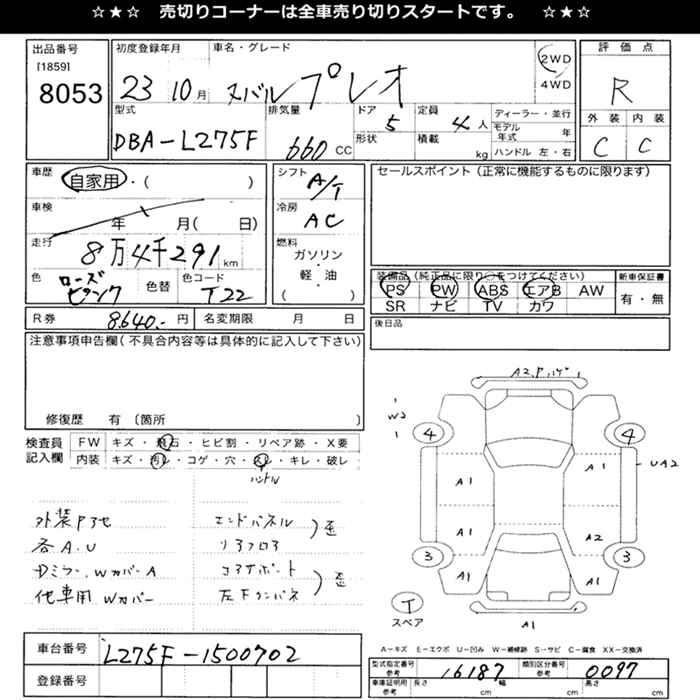 ☆★☆　売切りコーナーは全車売り切りスタートです。　☆★☆
出品番号
[1859]
8053
初度登録年月
23 10月
車名・グレード
スバル プレオ
2WD
4WD
評価点
R
外装 内装
C C
型式
DBA-L275F
排気量
660 CC
ドア 5
形状
定員 4人
積載 kg
ディーラー・並行
モデル年式 年
ハンドル 左・右
車歴
自家用・( )
車検
年 月( 日)
走行
8万4千291km
色
ローズピンク
色替
色コード
T22
シフト
A/T
冷房
AC
燃料
ガソリン
・
軽・油
( )
セールスポイント(正常に機能するものに限ります)
装備品(純正品に限り○をつけてください)
PS PW ABS エアB AW
SR ナビ TV カワ
新車保証書
有・無
R券 8,640.- 円
名変期限 月 日
後日品
注意事項申告欄(不具合内容等は具体的に記入して下さい)
修復歴 有 〔箇所 〕
検査員
記入欄
FW キズ・飛石・ヒビ割・リペア跡・X要
内装 キズ・汚レ・コゲ・穴・スレ・キレ・破レ
ハンドル
外装P3セ
各A.U
Dミラー、WカバーA
他車用Wカバー
エンドパネル
リアフロア
)歪
コアサポート
左Fインパネ
)歪
A2.P.ハゲ
W2
4
4
A1
A1
UA2
A1
A1
A2
3
3
A1
A1
T
スペア
A1
A-キズ E-エクボ U-凹み W-補修跡 S-サビ C-腐食 XX-交換済
車台番号
L275F-1500702
登録番号
型式指定番号
参考
16187
類別区分番号
参考
0097
車庫証明用
参考
長さ cm
幅 cm
高さ cm